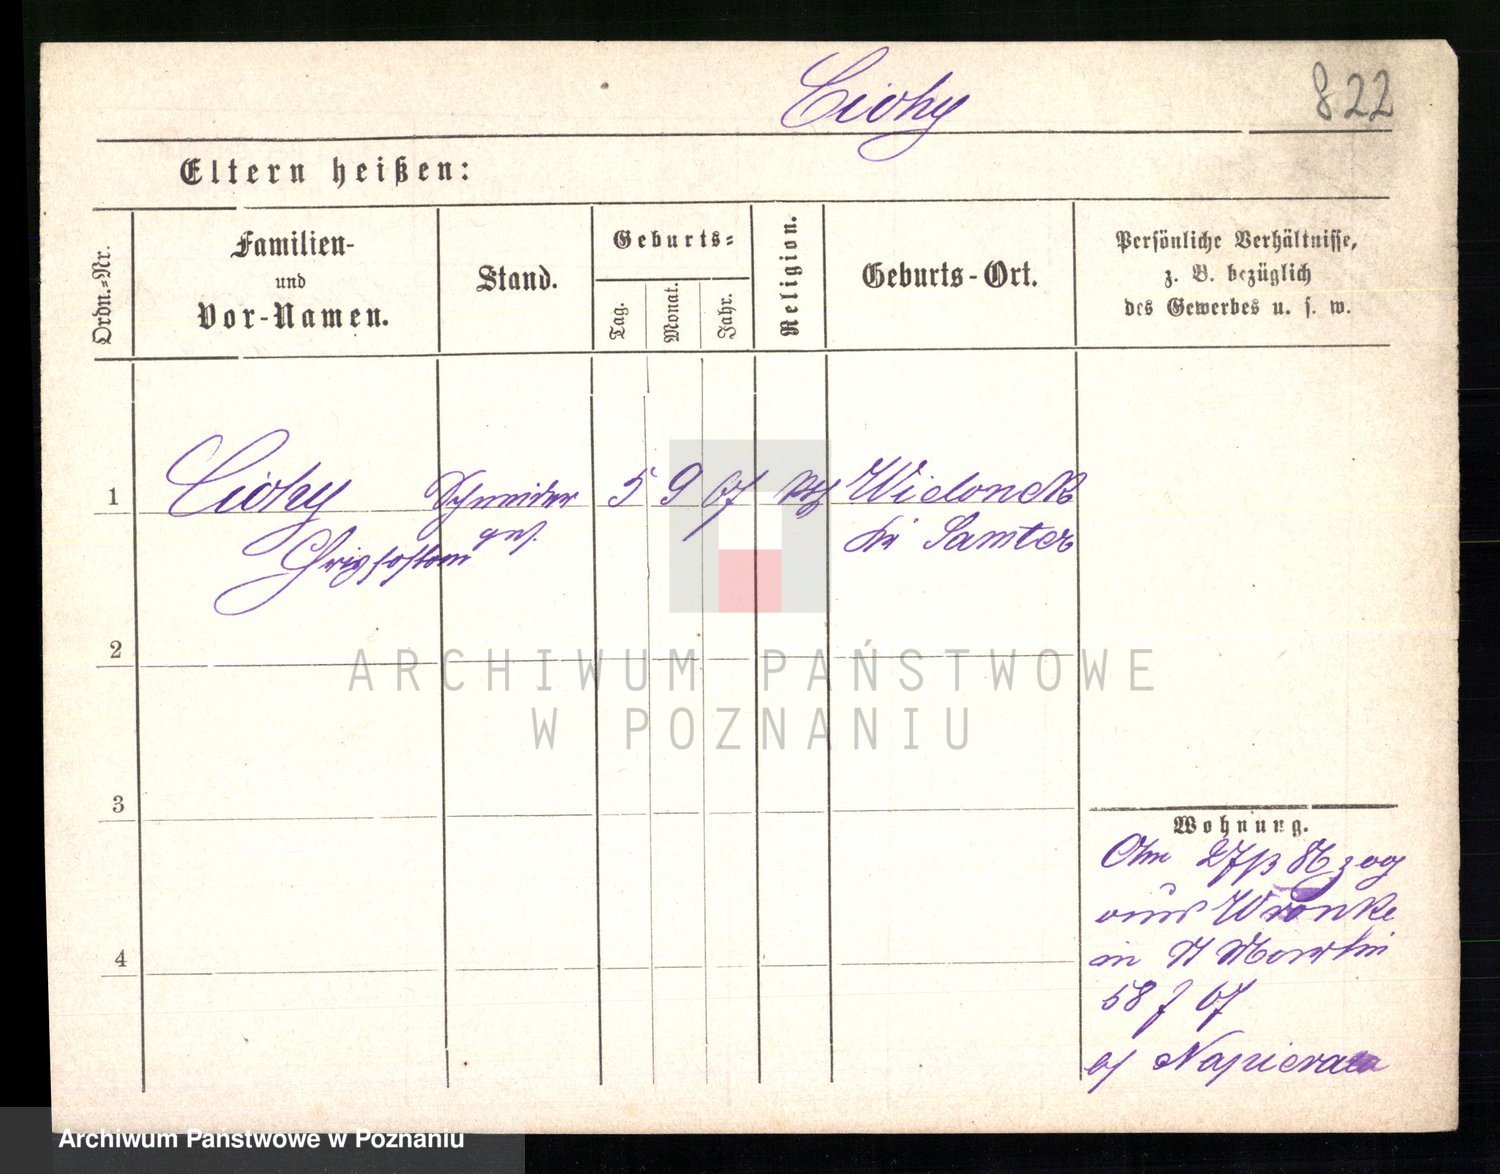 Cichy
822
Eltern heißen:
Ordn.-Nr.
Familien-
und
Vor-Namen.
Stand.
Geburts-
Tag.
Monat.
Jahr.
Religion.
Geburts-Ort.
Persönliche Verhältnisse,
z. B. bezüglich
des Gewerbes u. s. w.
1
Cichy Schneider 5 9 67 kth Wielonek
Chrizostom ges. bei Samter
2
ARCHIWUM PAŃSTWOWE
W POZNANIU
3
Wohnung.
27/3 86 zog
aus Wronke
in St Martin
58 67
Napierala
4
Archiwum Państwowe w Poznaniu